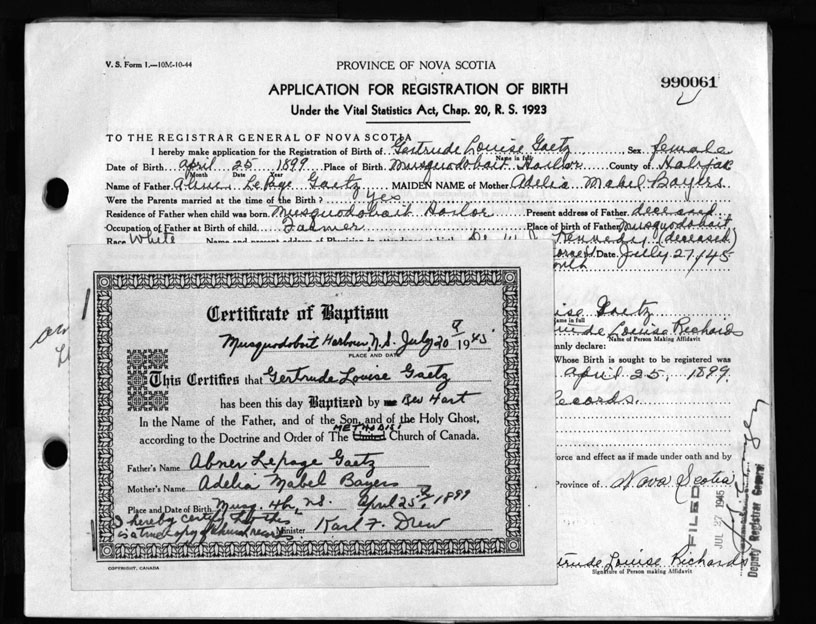 V. S. Form 1.—10M-10-44
PROVINCE OF NOVA SCOTIA
990061
APPLICATION FOR REGISTRATION OF BIRTH
Under the Vital Statistics Act, Chap. 20, R. S. 1923
TO THE REGISTRAR GENERAL OF NOVA SCOTIA
I hereby make application for the Registration of Birth of Gertrude Louise Gaetz Sex female
Name in full
Date of Birth April 25 1899 Place of Birth Musquodoboit Harbor County of Halifax
Month Date Year
Name of Father Abner LePage Gaetz MAIDEN NAME of Mother Adelia Mabel Bayers
Were the Parents married at the time of the Birth? yes
Residence of Father when child was born Musquodoboit Harbor Present address of Father deceased
Occupation of Father at Birth of child Farmer Place of birth of Father Musquodoboit
Race White Name and present address of Physician in attendance at birth Kennedy (deceased)
Date July 27/45
Certificate of Baptism
Musquodoboit Harbour, N.S. July 20 1945
PLACE AND DATE
This Certifies that Gertrude Louise Gaetz
has been this day Baptized by Rev Hart
In the Name of the Father, and of the Son, and of the Holy Ghost,
METHODIST
according to the Doctrine and Order of The United Church of Canada.
Father's Name Abner Lepage Gaetz
Mother's Name Adelia Mabel Bayers
Place and Date of Birth Musq. Hbr, N.S. April 25th 1899
I hereby certify that this
is a true copy of church records Minister Karl F. Drew
COPYRIGHT, CANADA
ise Gaetz
ame in full
rude Louise Richards
Name of Person Making Affidavit
nly declare:
Whose Birth is sought to be registered was
April 25, 1899.
ecords.
orce and effect as if made under oath and by
Province of Nova Scotia
FILED
JUL 27 1945
Deputy Registrar General
trude Louise Richards
Signature of Person making Affidavit